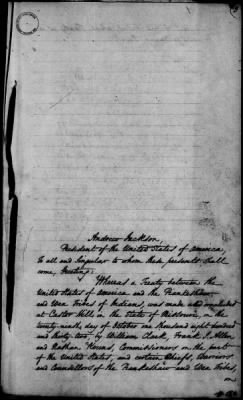 Andrew Jackson,
President of the United States of America,
To all and singular to whom these presents shall
come, Greeting:
Whereas a Treaty between the
United States of America and the Piankeshaw
and Wea Tribes of Indians, was made and concluded
at Castor Hill, in the State of Missouri, on the
twenty-ninth day of October one thousand eight hundred
and thirty two, by William Clark, Frank J. Allen
and Nathan Kouns, Commissioners on the part
of the United States, and certain Chiefs, Warriors
and Counsellors of the Piankeshaw and Wea Tribes,
on